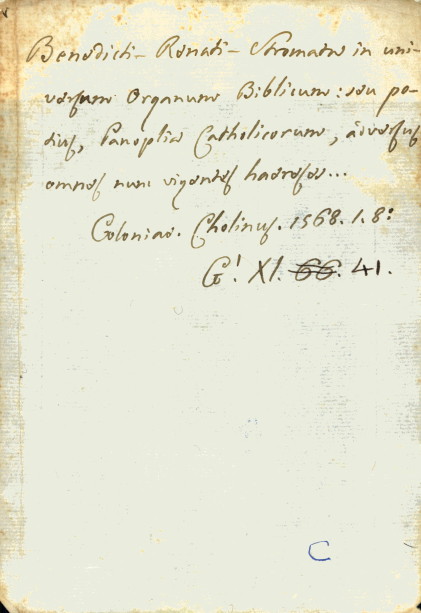 Benedicti Renati Stromata in uni-
versum Organum Biblicum: seu po-
tius, Panoplia Catholicorum, adversus
omnes nunc vigentes haereses...
Coloniae. Cholinus. 1568. 1. 8°
G! XI. 66. 41.
C